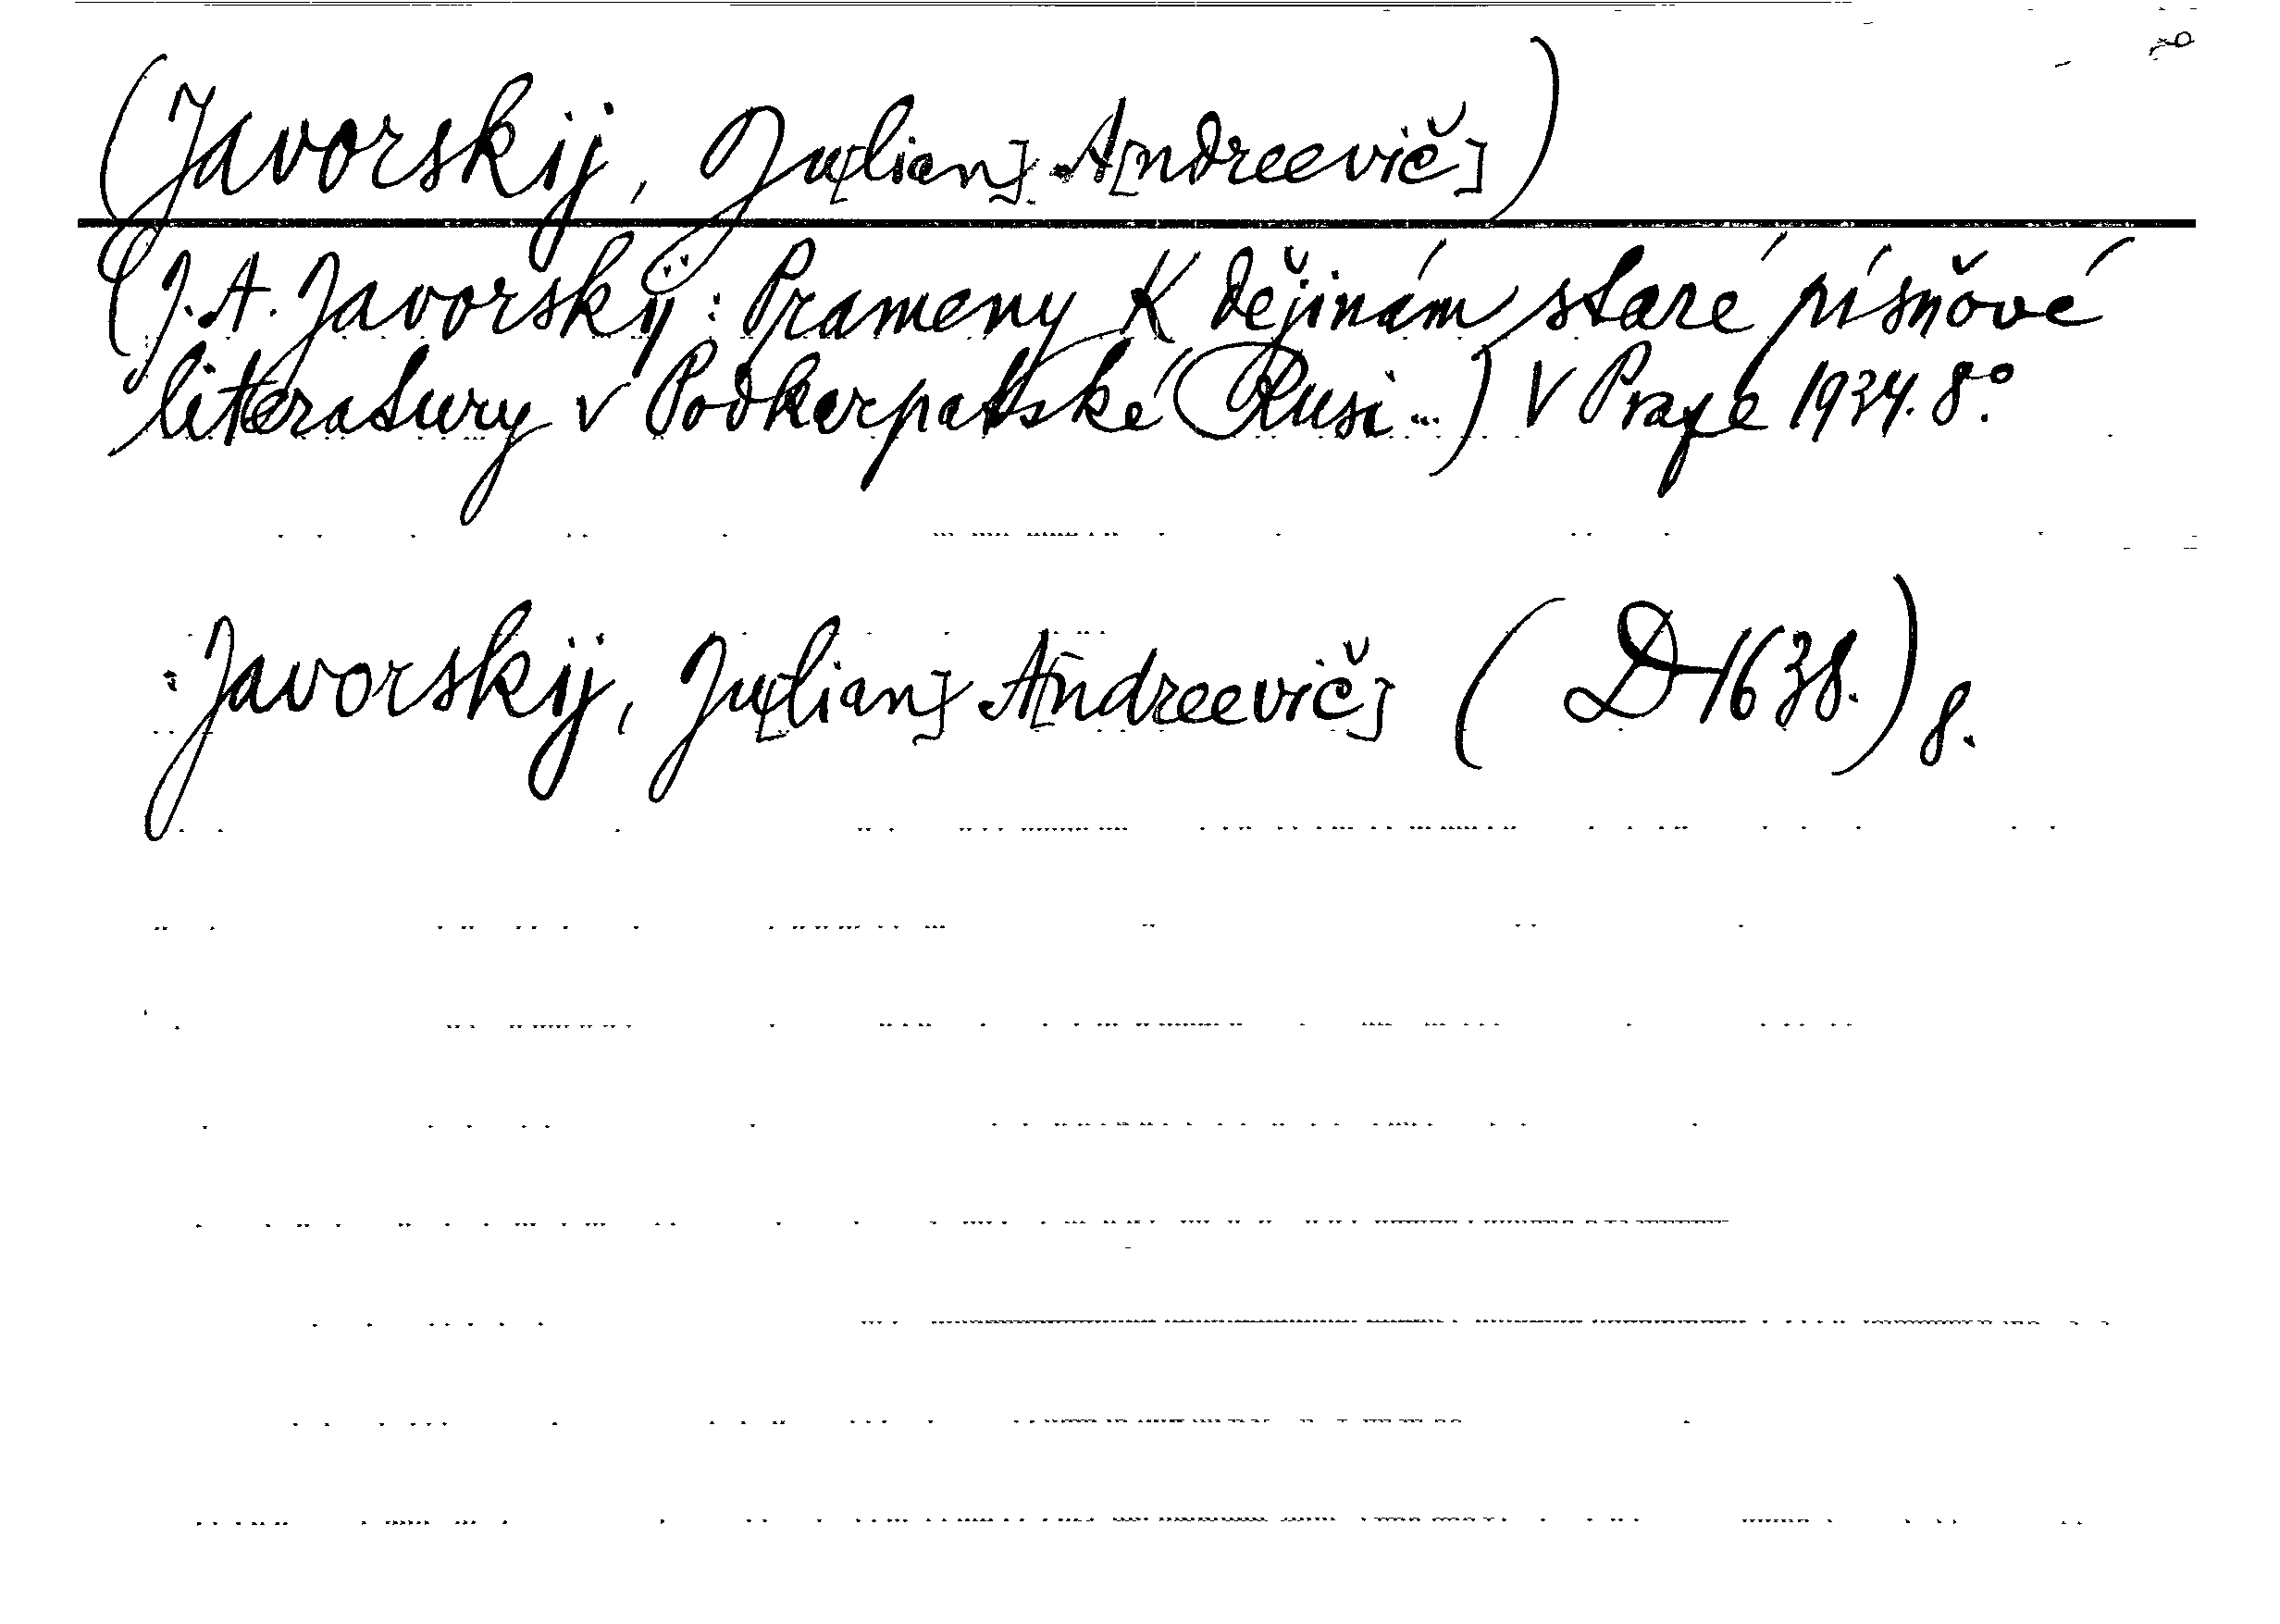 (Javorskij, Ju[lian] A[ndreevič])
(J. A. Javorskij: Prameny k dějinám staré písňové
literatury v Podkarpatské Rusi...) V Praze 1934. 8°.
Javorskij, Ju[lian] A[ndreevič] (D-1638.) 8.